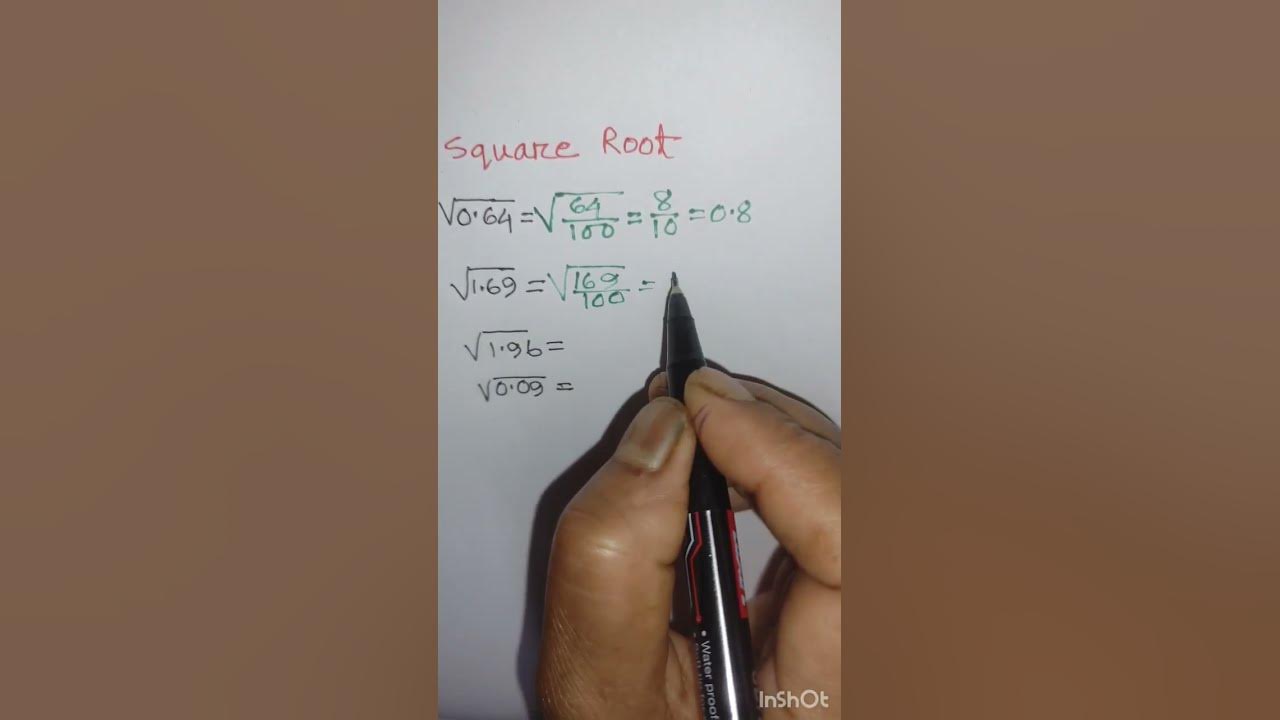 Square Root
√0.64 = √64/100 = 8/10 = 0.8
√1.69 = √169/100 =
√1.96 =
√0.09 =
• Water proof
InShOt